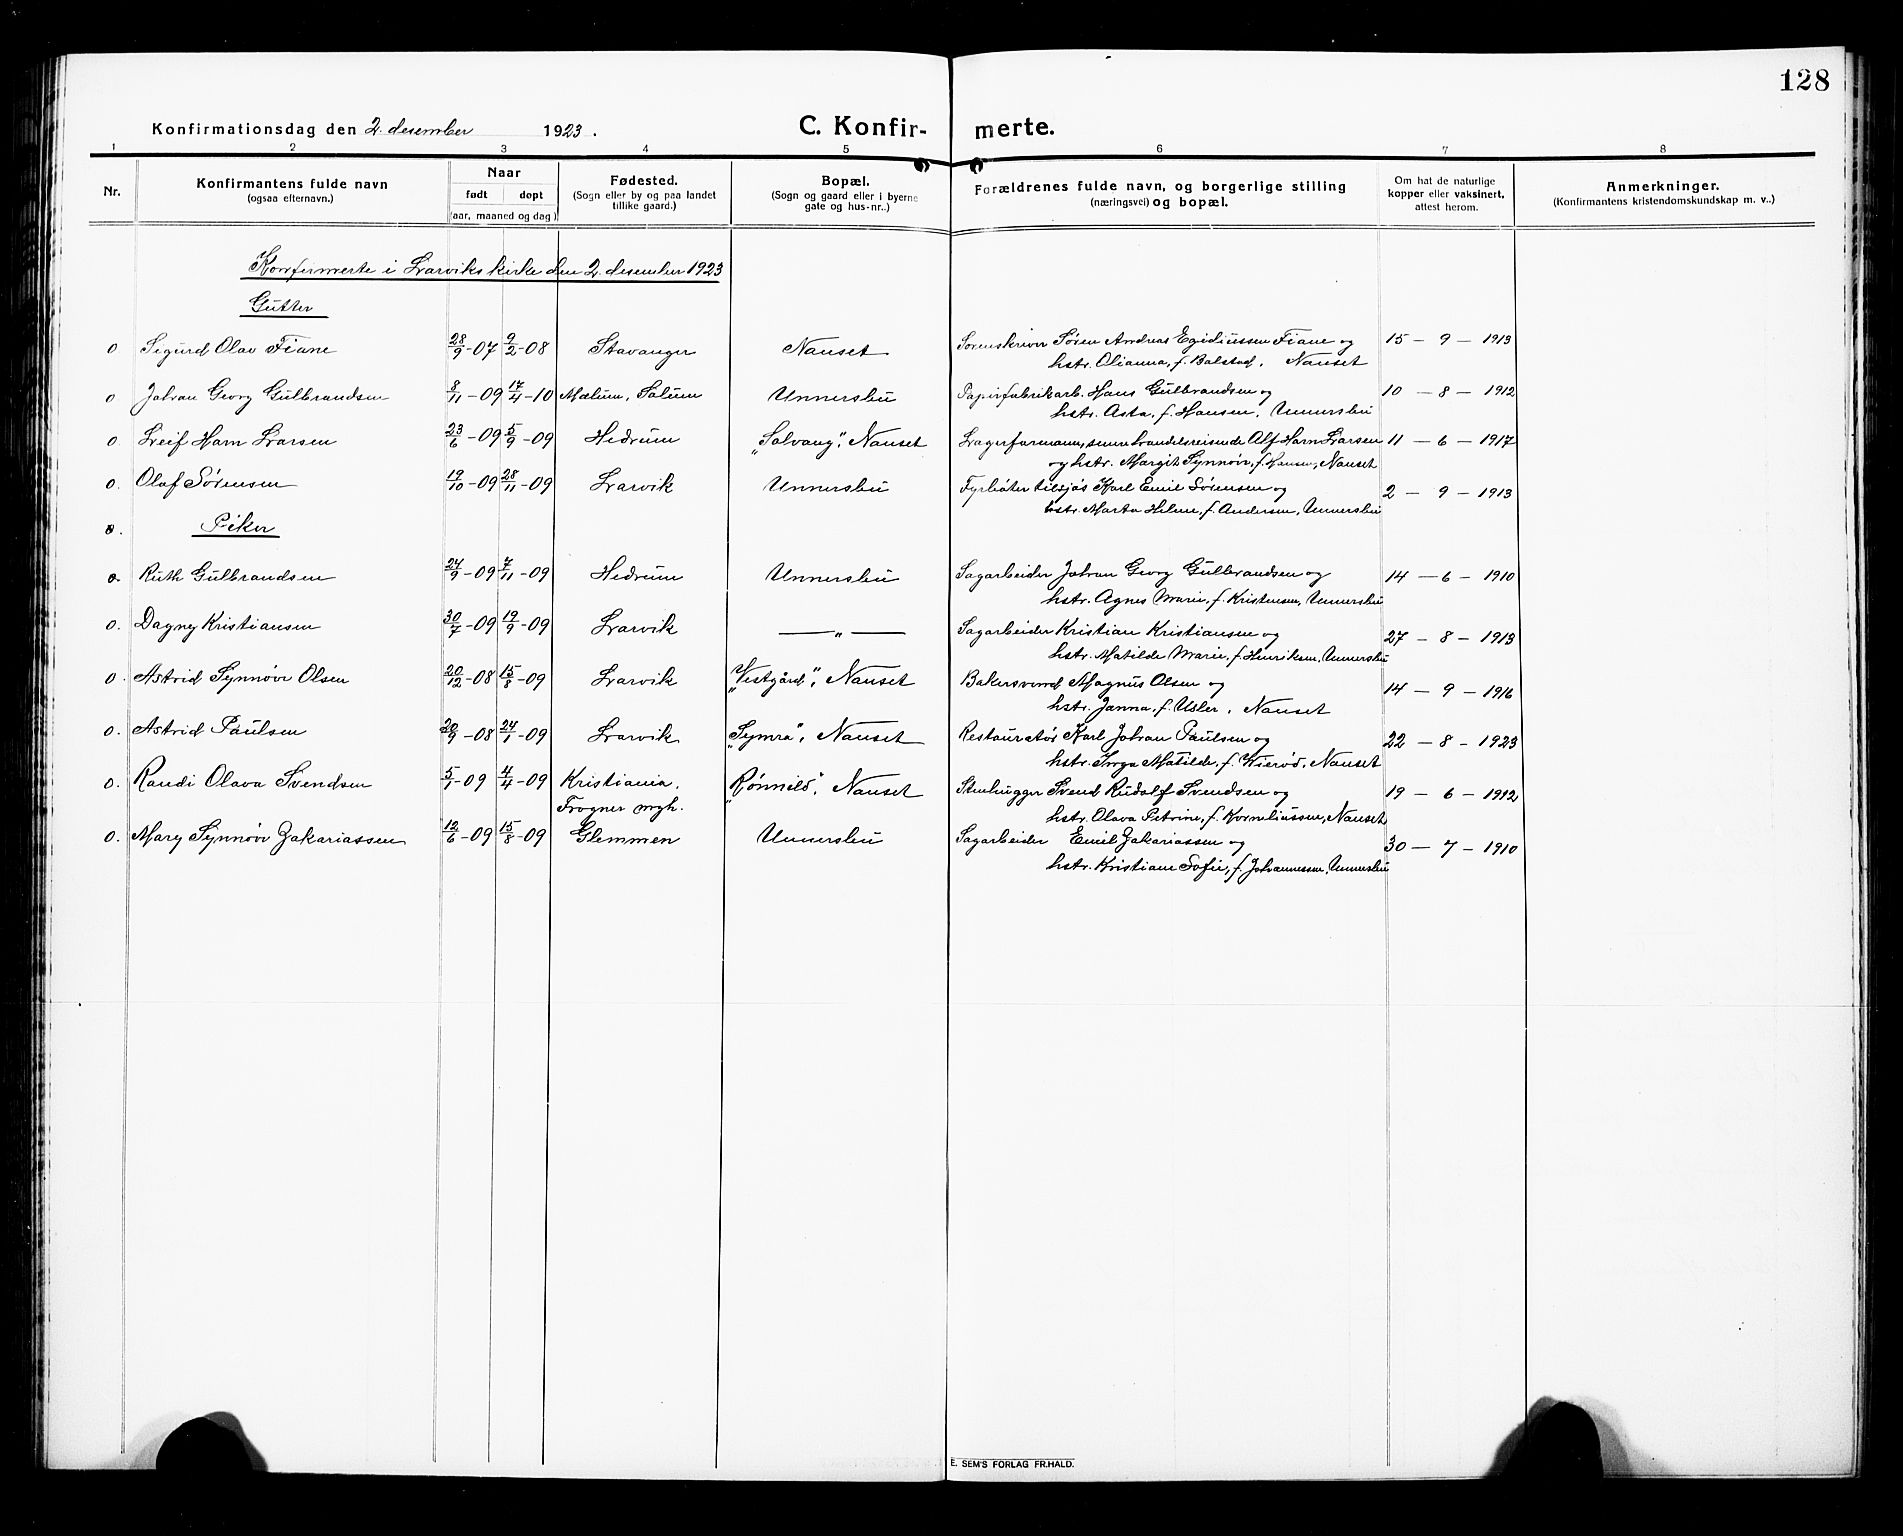 128
Konfirmationsdag den 2. desember 1923.
C. Konfir- merte.
1 2 3 4 5 6 7 8
Nr.
Konfirmantens fulde navn
(ogsaa efternavn.)
Naar
født døpt
(aar, maaned og dag)
Fødested.
(Sogn eller by og paa landet
tillike gaard.)
Bopæl.
(Sogn og gaard eller i byerne
gate og hus-nr..)
Forældrenes fulde navn, og borgerlige stilling
(næringsvei) og bopæl.
Om hat de naturlige
kopper eller vaksinert,
attest herom.
Anmerkninger.
(Konfirmantens kristendomskundskap m. v..)
Konfirmerte i Larviks kirke den 2. desember 1923
Gutter
o Sigurd Olav Fiane 28/9-07 9/2-08 Stavanger Nanset Sorenskriver Søren Andreas Egidiussen Fiane og 15-9-1913
hstr. Olianna, f. Balstad, Nanset
o Johan Georg Gulbrandsen 8/11-09 17/4-10 Mælum, Solum Unnersbu Papirfabrikarb. Hans Gulbrandsen og 10-8-1912
hstr. Asta, f. Hansen, Unnersbu
o Leif Harn Larsen 23/6-09 5/9-09 Hedrum "Solvang", Nanset Lagerformann, senere handelsreisende Alf Harn Larsen 11-6-1917
og hstr. Margit Synnøve, f. Hansen, Nanset
o. Olaf Sørensen 19/10-09 28/11-09 Larvik Unnersbu Fyrbøter tilsjøs Karl Emil Sørensen og 2-9-1913
hstr. Marta Helene, f. Andersen, Unnersbu
o. Piker
o Ruth Gulbrandsen 24/9-09 7/11-09 Hedrum Unnersbu Sagarbeider Johan Georg Gulbrandsen og 14-6-1910
hstr. Agnes Marie, f. Kristensen, Unnersbu
o. Dagny Kristiansen 30/7-09 19/9-09 Larvik — " — Sagarbeider Kristian Kristiansen og 27-8-1913
hstr. Matilde Marie, f. Henriksen, Unnersbu
o. Astrid Synnøve Olsen 20/12-08 15/8-09 Larvik "Vestgård", Nanset Bakersvend Magnus Olsen og 14-9-1916
hstr. Janna, f. Usler, Nanset
o. Astrid Paulsen 20/9-08 24/1-09 Larvik "Symra", Nanset Restauratør Karl Johan Paulsen og 22-8-1923
hstr. Inga Matilde, f. Kierød, Nanset
o. Randi Olava Svendsen 5/1-09 4/4-09 Kristiania, "Rønnild", Nanset Stenhugger Svend Rudolf Svendsen og 19-6-1912
Frogner mgh. hstr. Olava Petrine, f. Korneliussen, Nanset
o. Mary Synnøve Zakariassen 12/6-09 15/8-09 Glemmen Unnersbu Sagarbeider Emil Zakariassen og 30-7-1910
hstr. Kristiane Sofie, f. Johannessen, Unnersbu
E. SEM'S FORLAG FR.HALD.